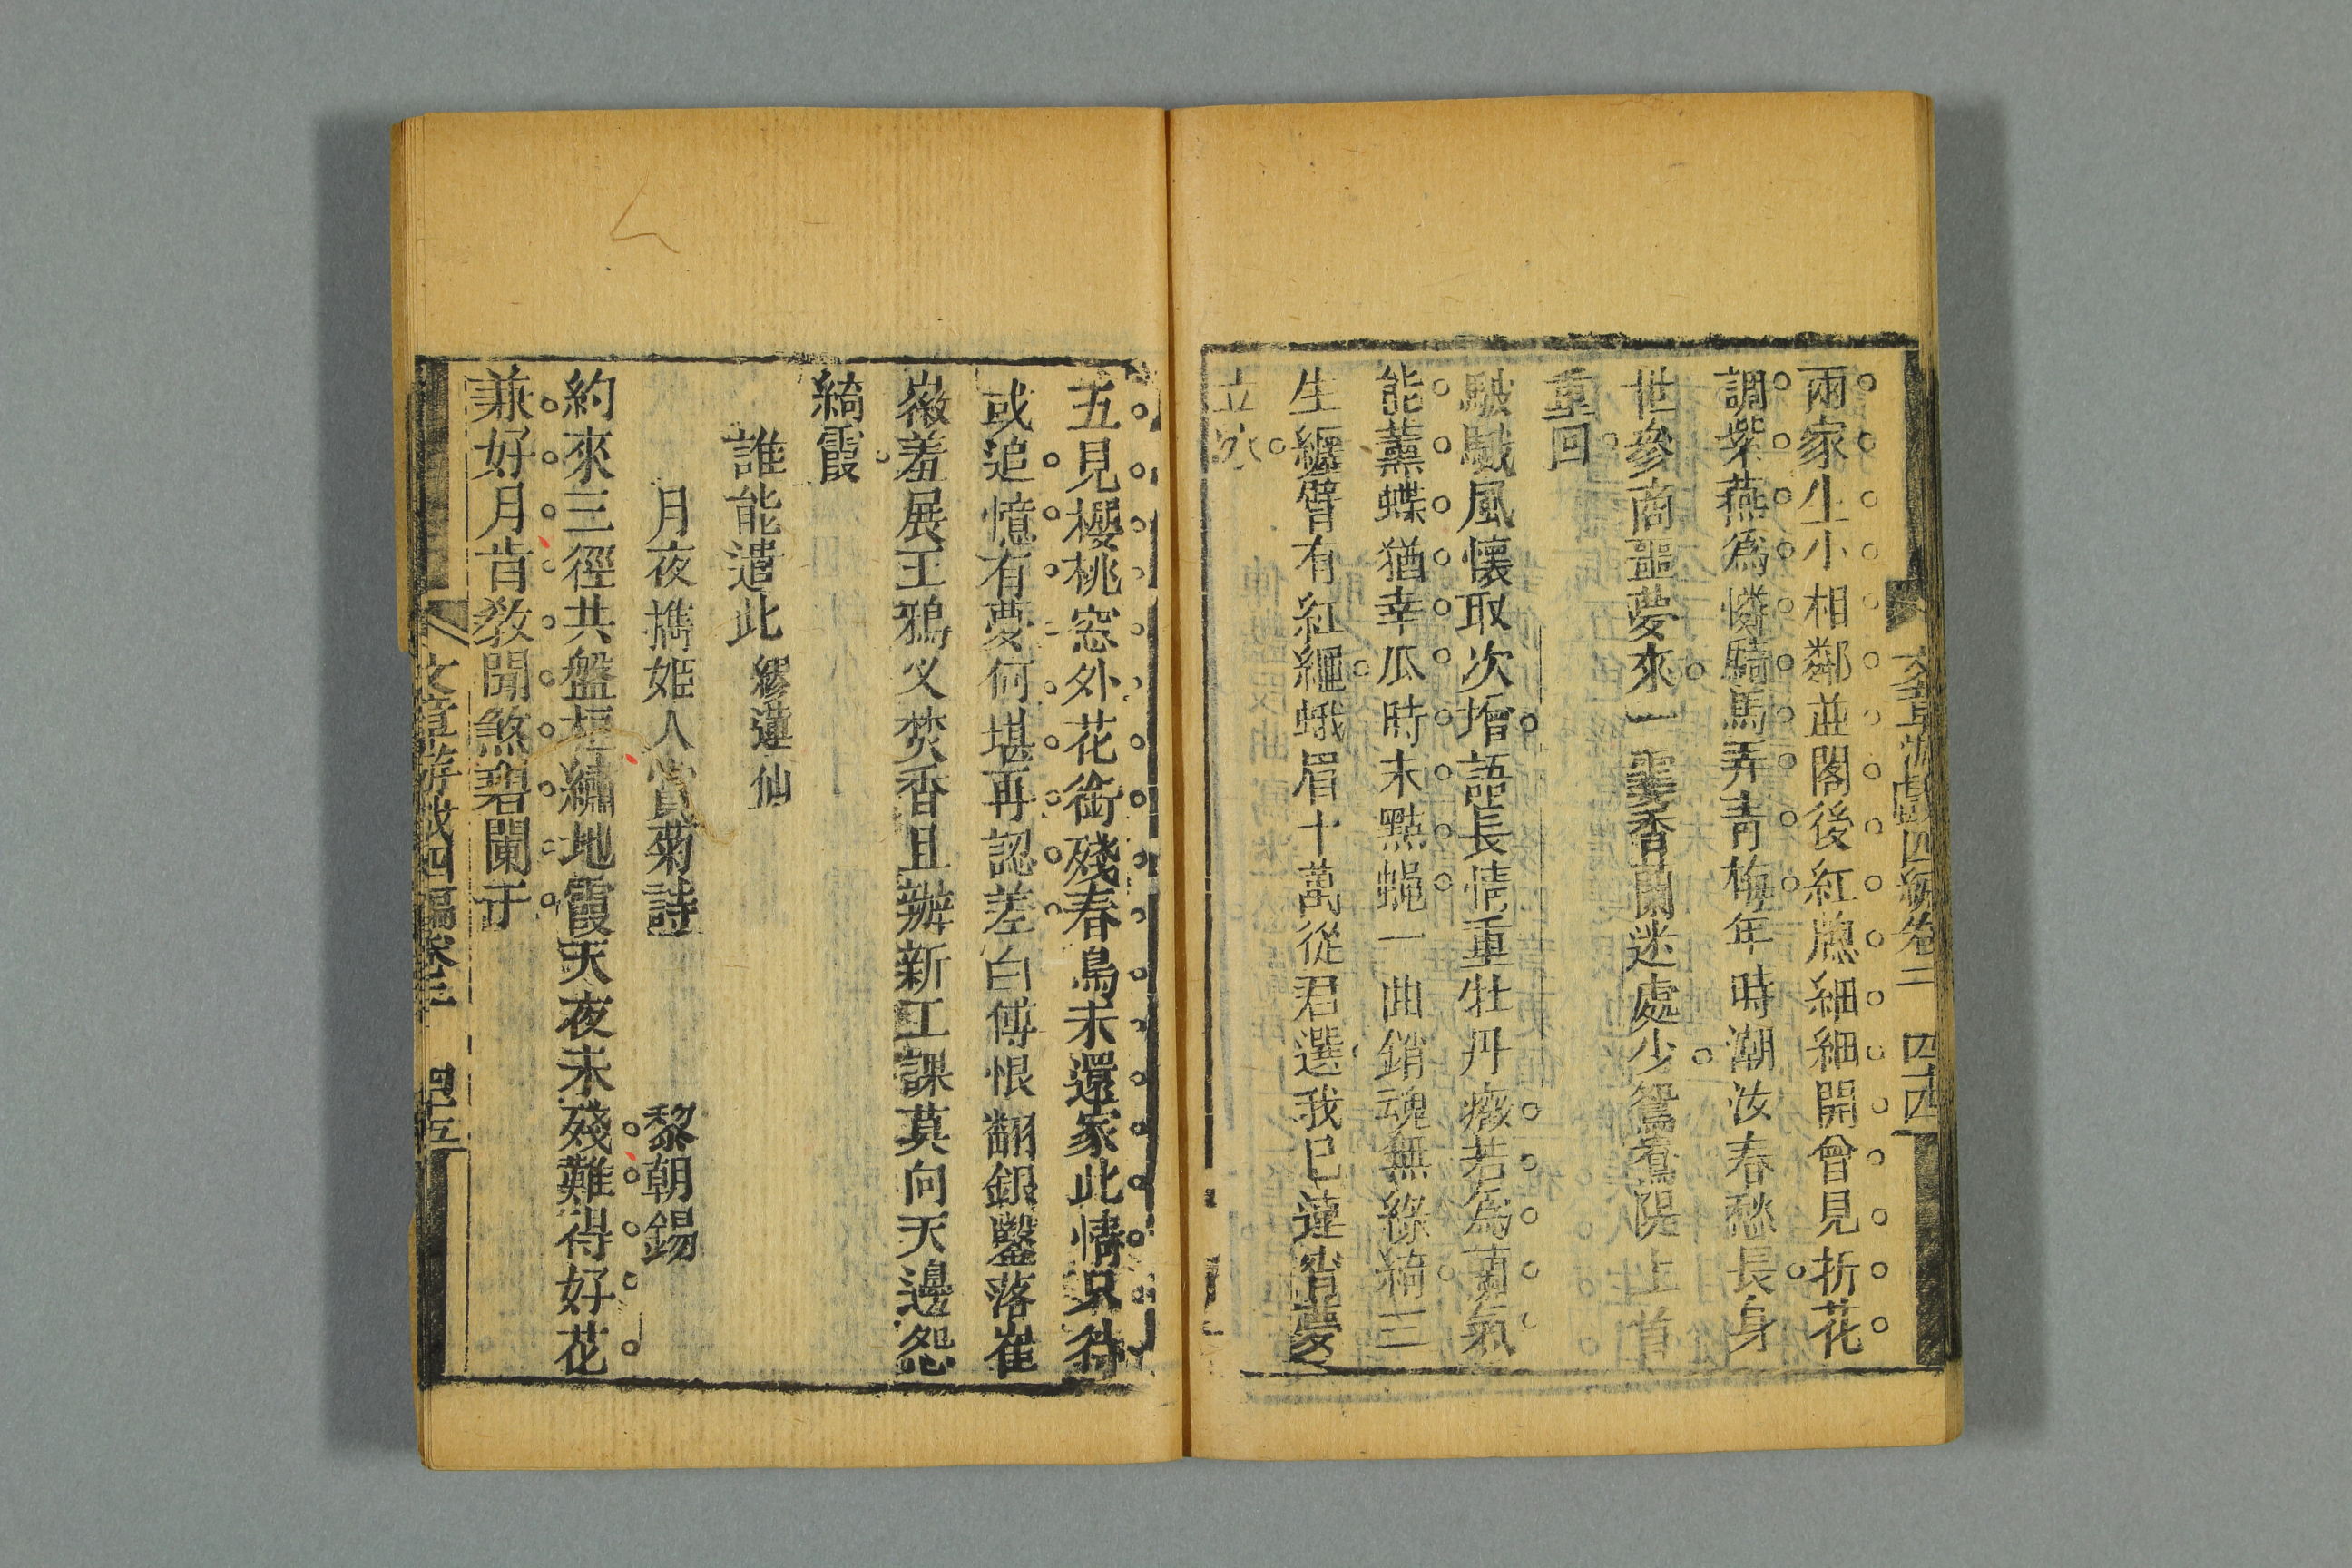 兩家生小相鄰並閣後紅牕細細開曾見折花
調紫燕爲憐騎馬弄青梅年時潮汝春愁長身
世參商噩夢來一霎香蘭迷處少鴛鴦隄上首
重回
駊騀風懷取次增語長情重牡丹癥若爲蘭氣
能薰蝶猶幸瓜時未點蠅一曲銷魂無綠綺三
生纏臂有紅繩蛾眉十萬從君選我已蓮 夢
立
五見櫻桃窓外花銜殘春鳥未還家此情只待
或追憶有夢何堪再認差白傅恨翻銀鑿落崔
徽羞展玉鴉叉焚香且辦新工課莫向天邊怨
綺霞
誰能遣此 繆蓮仙
月夜擕姬人賞菊詩 黎朝錫
約來三徑共盤桓繡地霞天夜未殘難得好花
兼好月肯教閒煞碧闌于
文章游戲四編卷三 四四
文章游戲四編卷三 四五